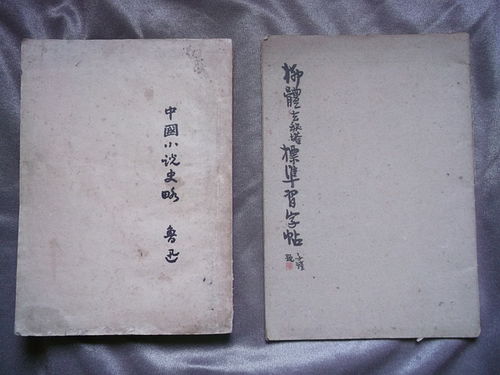 中國小说史略 魯迅
柳體玄秘塔標準習字帖